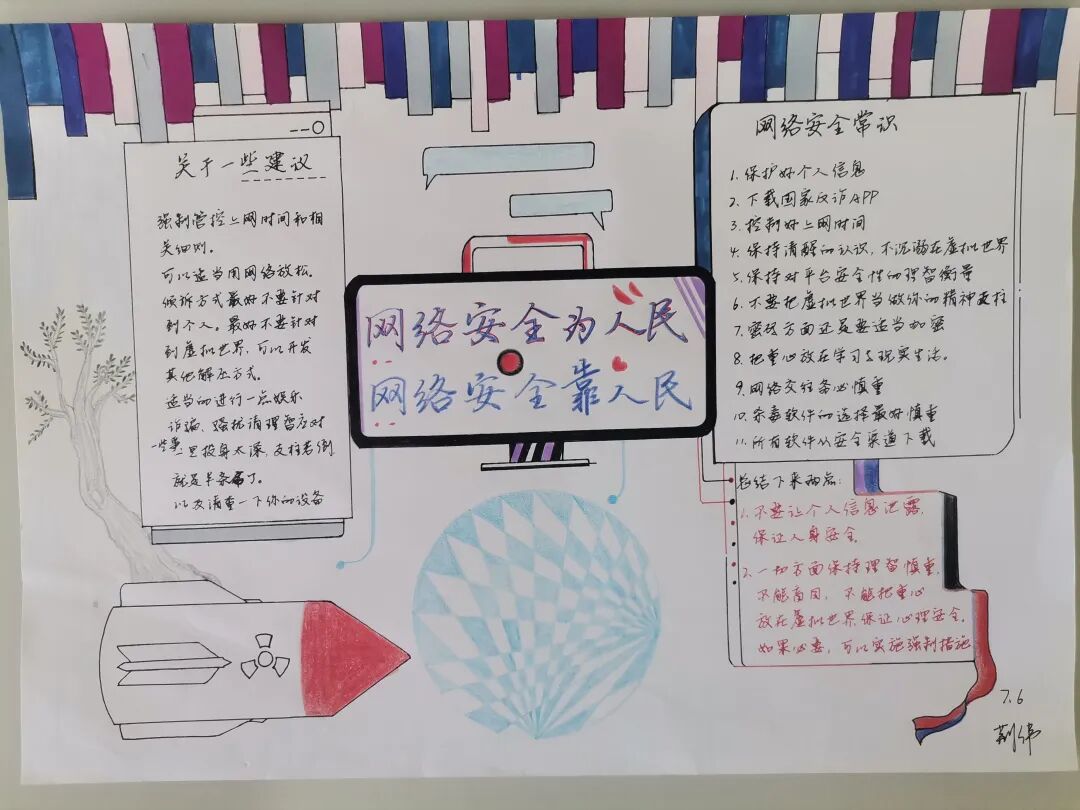 关于一些建议
强制管控上网时间和相
关细则。
可以适当用网络放松。
倾诉方式最好不要针对
到个人。最好不要针对
到虚拟世界,可以开发
其他解压方式。
适当的进行一点娱乐
诈骗、骚扰请理智应对
一些事里投身太深,支柱若倒
就是半条命了。
以及清查一下你的设备
网络安全为人民
网络安全靠人民
网络安全常识
1. 保护好个人信息
2. 下载国家反诈APP
3. 控制好上网时间
4. 保持清醒的认识,不沉溺在虚拟世界
5. 保持对平台安全性的理智衡量
6. 不要把虚拟世界当做你的精神支柱
7. 密码方面还是要适当加密
8. 把重心放在学习与现实生活。
9. 网络交往务必慎重
10. 杀毒软件的选择最好慎重
11. 所有软件从安全渠道下载
总结下来两点:
1. 不要让个人信息泄露,
保证人身安全。
2. 一切方面保持理智慎重,
不能盲目,不能把重心
放在虚拟世界,保证心理安全。
如果必要,可以实施强制措施
7.6